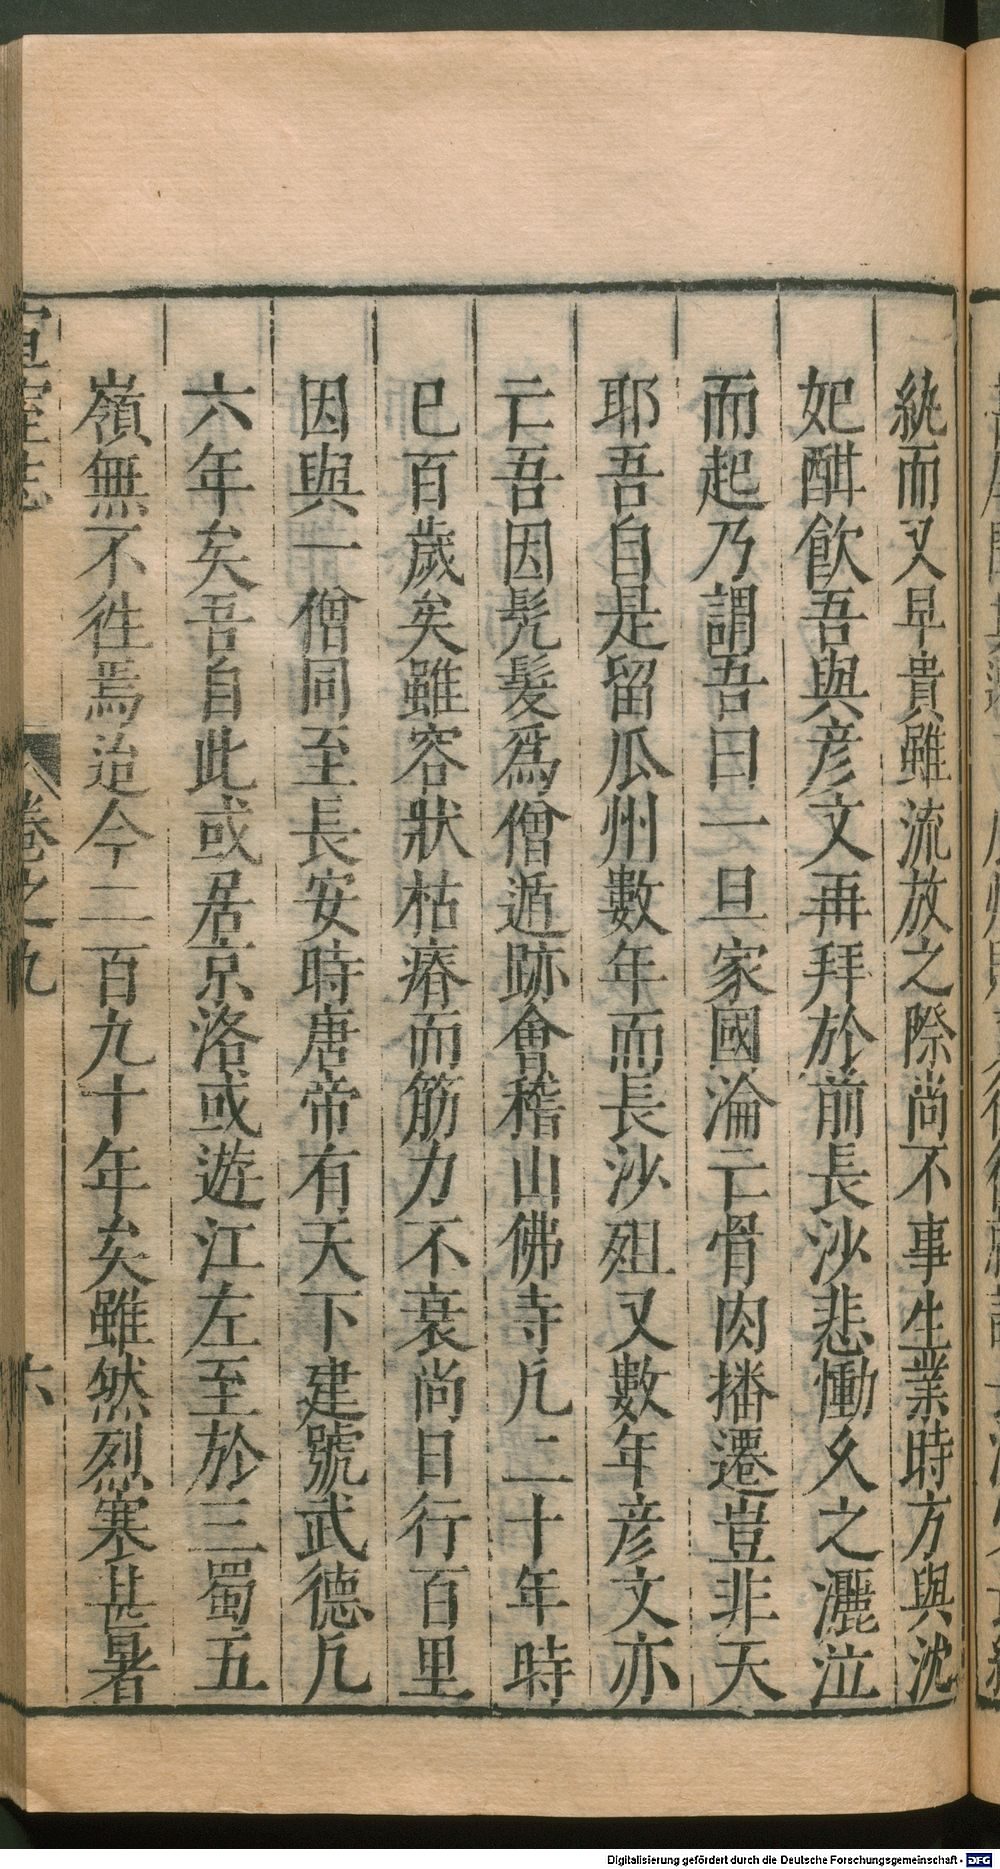 紈而又早貴雖流放之際尚不事生業時方與沈
妃酣飲吾與彦文再拜於前長沙悲慟久之灑泣
而起乃謂吾曰一旦家國淪亡骨肉播遷豈非天
耶吾自是留瓜州數年而長沙殂又數年彦文亦
亡吾因髠髮爲僧遁跡會稽山佛寺凡二十年時
已百歲矣雖容狀枯瘠而筋力不衰尚日行百里
因與一僧同至長安時唐帝有天下建號武德凡
六年矣吾自此或居京洛或遊江左至於三蜀五
嶺無不徃焉迨今二百九十年矣雖然烈寒甚暑
宣室志 卷之九 六
Digitalisierung gefördert durch die Deutsche Forschungsgemeinschaft - DFG